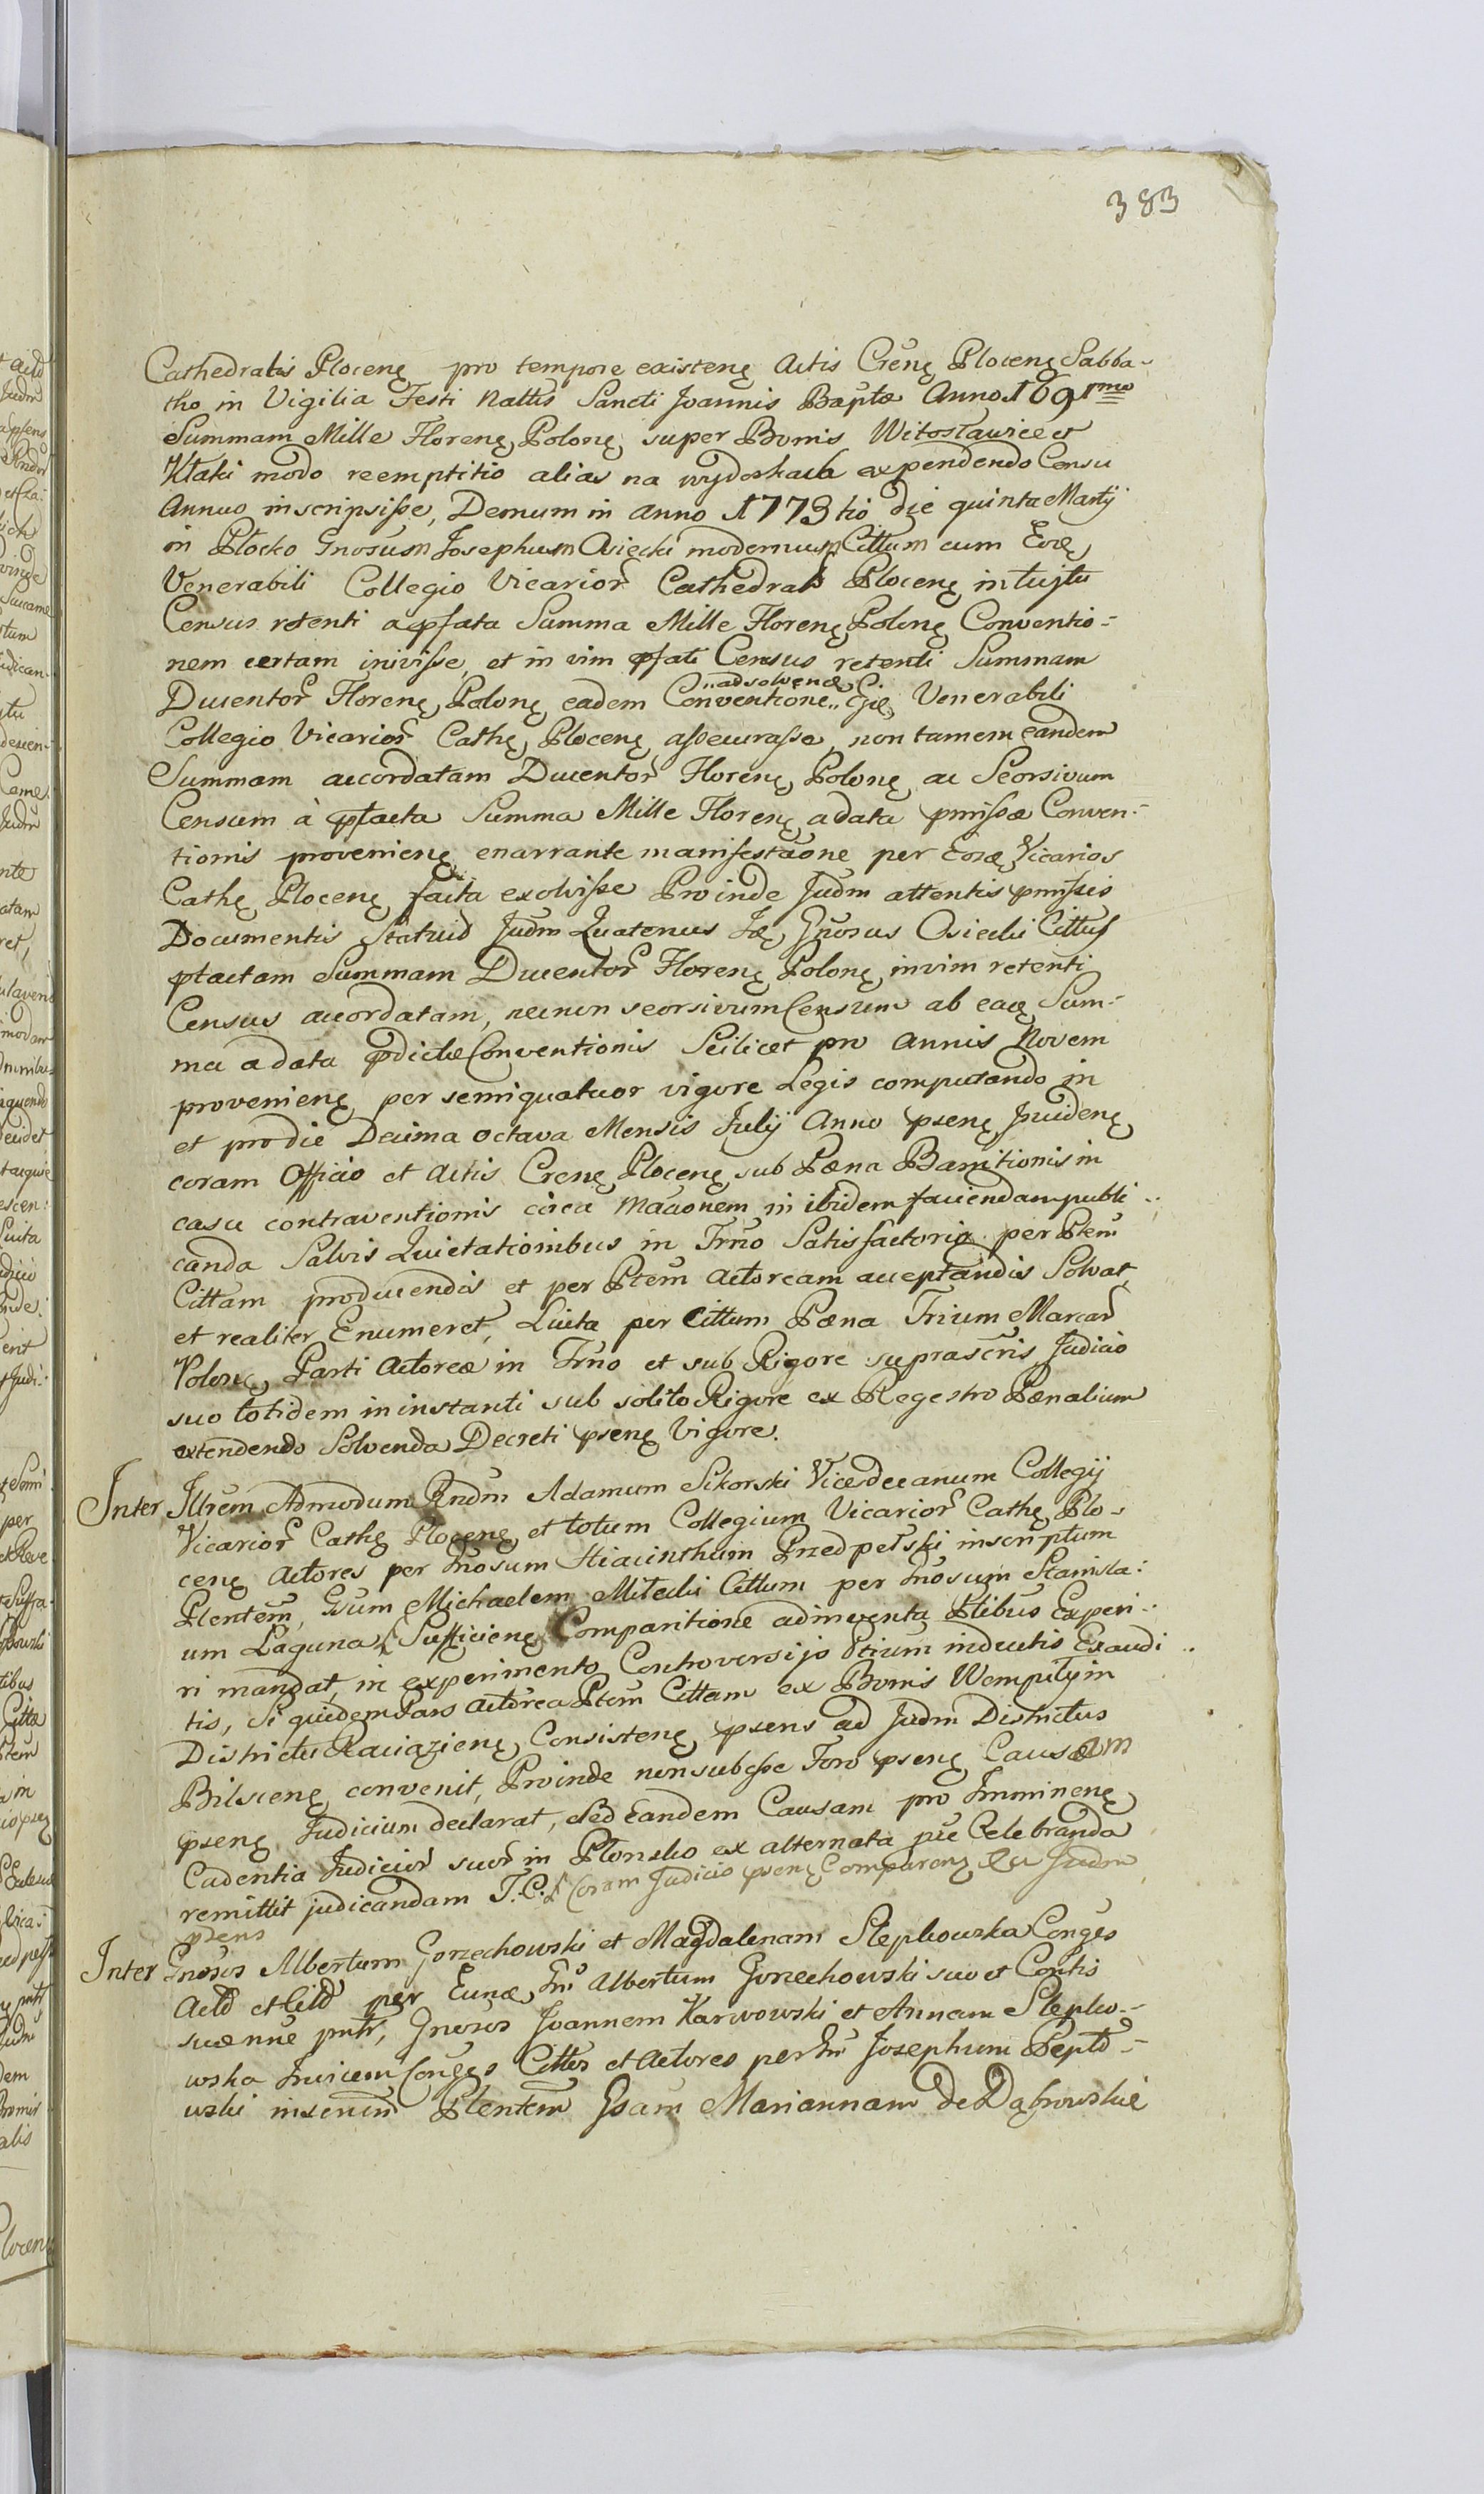 383
Cathedralis Plocenę pro tempore existenę Actis Crenę Plocenę Sabba-
tho in Vigilia Festi Nattis Sancti Joannis Baptæ Anno 1691mo
Summam Mille Florenę Polonę super Bonis Witosławice et
Kłaki modo reemptitio alias na wyderkach expendendo Censu
Annuo inscripsisse, Demum in anno 1773tio die quinta Martij
in Płocko Gnosum Josephum Osiecki modernum Cittum cum Eodę
Venerabili Collegio Vicarior Cathedralis Plocenę intuitu
Census retenti a pfata Summa Mille Florenę Polonę Conventio-
nem certam inivisse, et in vim pfati Census retenti Summam
Ducentor Florenę Polonę eadem Conventione Venerabili
Collegio Vicarior Cathę Plocenę assecurasse, non tamem eandem
Summam accordatam Ducentor Florenę Polonę ac Seorsivum
Censum à ptacta Summa Mille Florenę a data pmissæ Conven-
tionis provenienę enarrante manifestaone per Vicarios
Cathę Plocenę facta exolvisse Proinde Judm attentis pmissis
Documentis Statuid Judm Quatenus Gnosus Osiecki Cittus
ptactam Summam Ducentor Florenę Polonę in vim retenti
Census accordatam, necnon seorsivum Censum ab eadę Sum-
ma a data pdictæ Conventionis Scilicet pro Annis Novem
provenienę per semiquatuor vigore Legis computando in
et pro die Decima octava Mensis Julij Anno psenę
coram Officio et Actis Crenę Plocenę sub Pæna Bannitionis in
casu contraventionis circa in ibidem faciendam publi-
canda Salvis Quietationibus in Trno Satisfactorio per Ptem
Cittam producendis et per Ptem Actoream acceptandis Solvat
et realiter Enumeret, Luita per Cittum Pæna Trium Marcar
Polonę Parti Actoreæ in Trno et sub Rigore suprascris Judicio
suo totidem in instanti sub solito Rigore ex Regestro Pænalium
extendendo Solvenda Decreti psenę Vigore.
Inter Illrem Admodum Rndm Adamum Sikorski Vicedecanum Collegij
Vicarior Cathę Plocenę et totum Collegium Vicarior Cathę Plo-
cenę Actores per Gnosum Hiacinthum Przedpełski inscriptum
Plentem, Gsum Michaelem Mitecki Cittum per Gnosum Stanisla:
um Laguna Sufficienę Comparitione adinventa Ptibus Experi-
ri mandat, in experimento Controversijs Ptium inductis Exaudi-
tis, Si quidem Pars Actorea Ptem Cittam ex Bonis Wempiły in
Districtu Raciązienę Consistenę psens ad Judm Districtus
Bilscenę convenit, Proinde non subesse Foro psenę Causam
psenę Judicium declarat, sed Eandem Causam pro Imminenę
Cadentia Judicior suor in Płonsko ex alternata Celebranda
remittit judicandam T.C. Coram Judicio psenę Judm
psens
Inter Gnosos Albertum Gorzechowski et Magdalenam Slepkowska Conges
Actd et Citd per Albertum Gorzechowski suo et Contis
suæ nne pnte, Gnosos Joannem Karwowski et Annam Slepko-
wska Invicem Conges Cittos et Actores per Josephum
wski Plentem Gsam Mariannam De Dąbrowskie